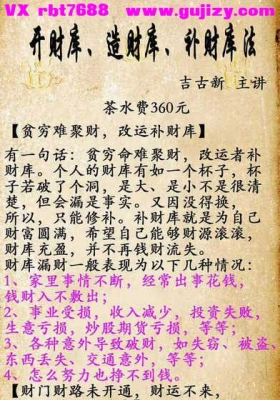 VX rbt7688 www.gujizy.com
开财库、造财库、补财库法
吉古新 主讲
茶水费360元
【贫穷难聚财,改运补财库】
有一句话:贫穷命难聚财,改运者补
财库。个人的财库有如一个杯子,杯
子若破了个洞,是大、是小不是很清
楚,但会漏是事实。又因没得换,
所以,只能修补。补财库就是为自己
财富圆满,希望自己能够财源滚滚,
财库充盈,并不再钱财流失。
财库漏财一般表现为以下几种情况:
1、家里事情不断,经常出事花钱,
钱财入不敷出;
2、事业受损,收入减少,投资失败,
生意亏损,炒股期货亏损,等等;
3、各种意外导致破财,如失窃、被盗、
东西丢失、交通意外,等等;
4、怎么努力也挣不到钱。
【财门财路未开通,财运不来,